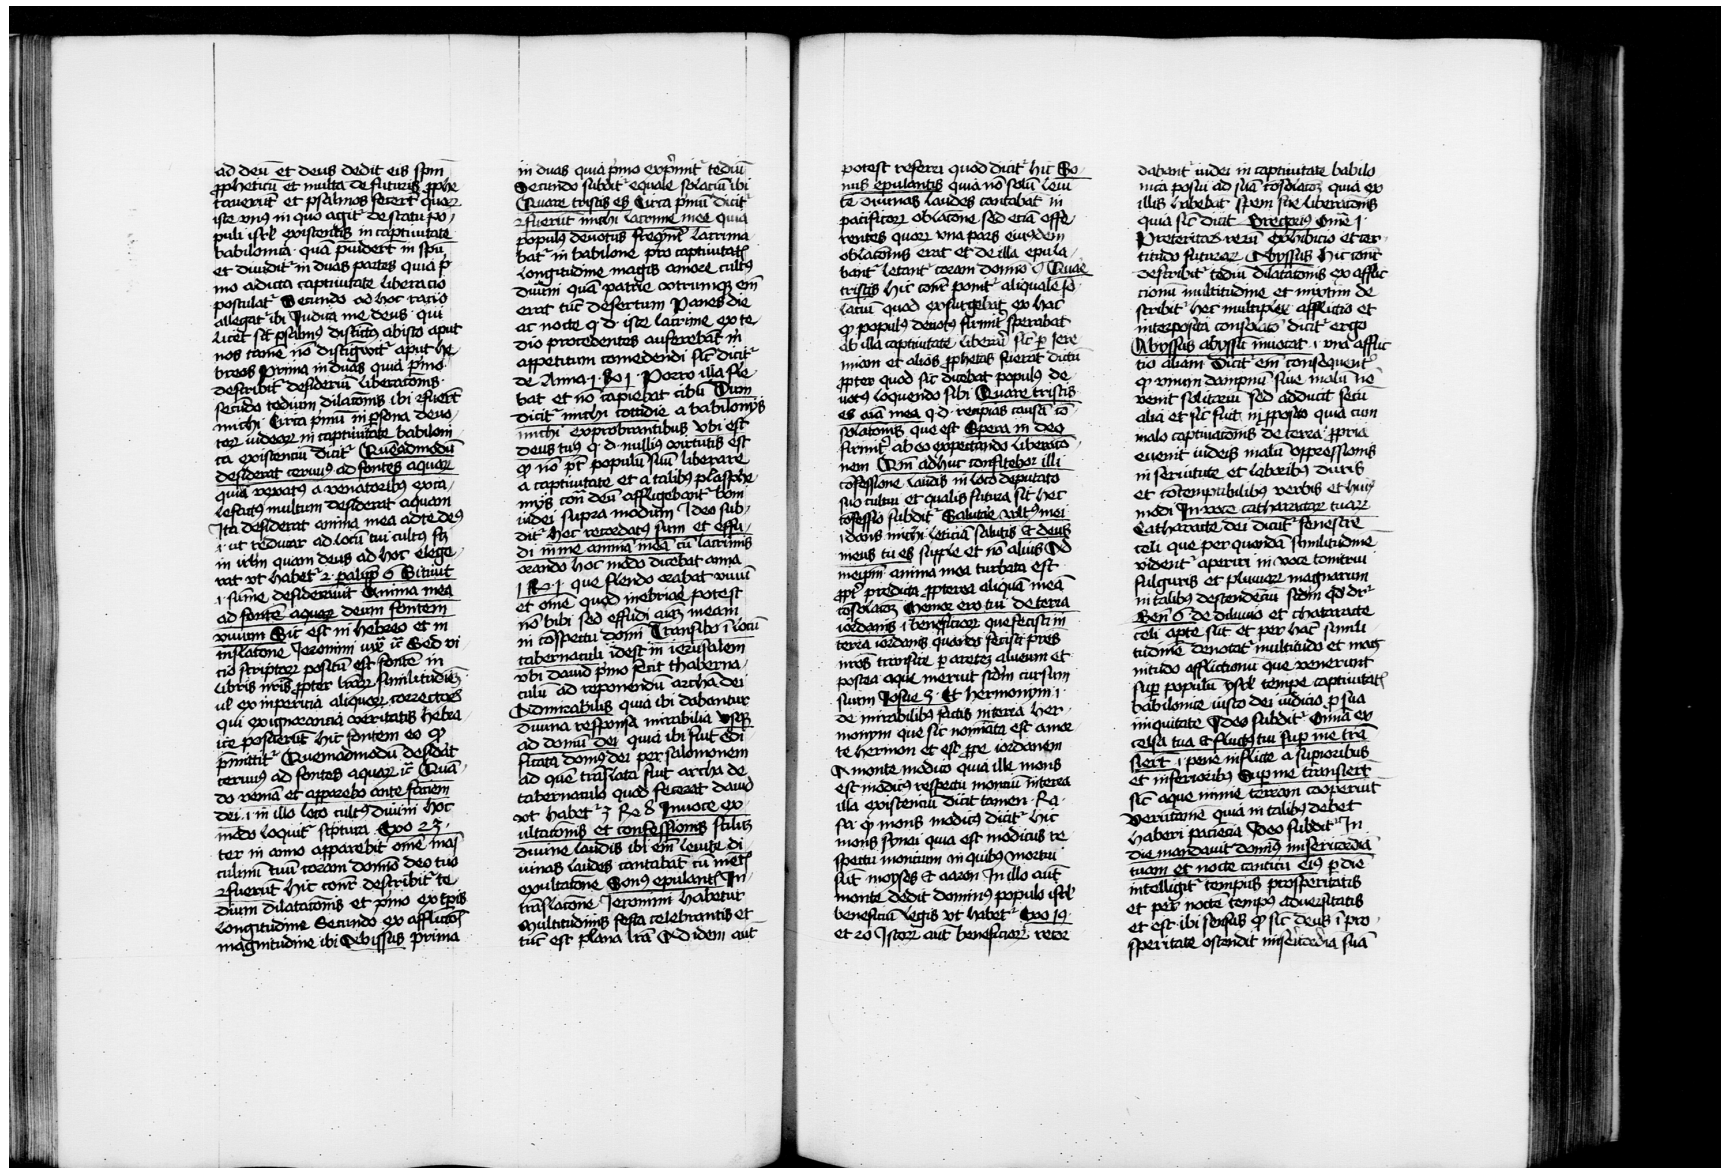 ad deū et deus dedit eis spm̄
ꝓpheticū et multa de futuris ꝓphe
tauerūt et psalmos fecerūt quoꝝ
iste vnus in quo agit' de statu po-
puli isrl' existentis in captiuitate
babilonica quā p̄uiderūt in spū
et diuidit' in duas partes quia p'
mo adicta captiuitate liberacio
postulat' Secundo ad hoc racio
allegat' ibi Judica me deus qui
licet sit psalmus distīctus ab isto aput
nos tamē nō distīguit' aput he
breos Prima in duas quia p'mo
describit' desideriū liberacōnis
secūdo tedium dilacōnis ibi ⁊ fuerūt
michi Circa p'mū in ꝑsona deuo-
toꝝ iudeoꝝ in captiuitate babiloni
ca existenciū dicit' Quēadmodū
desiderat ceruus ad fontes aquaꝝ
quia vexatus a venatoribus exca-
lefactus multum desiderat aquam
Ita desiderat anima mea ad te deꝰ
.i. ut reducar ad locū tui cultus sc̄
in irl'm quam deus ad hoc elege-
rat vt habet' 2 palipp 6 Sitiuit
.i. sūme desiderauit Anima mea
ad fontē aquaꝝ deum fontem
viuum Sic est in hebreo et in
trāslatōne Jeronimi iuxͣ ꝛc̄ Sed vi-
cio scriptoꝝ positū est fontē in
libris nr̄is ꝓpter lrāꝝ similitudiēꝫ
ul' ex impericia aliquoꝝ correctoꝝ
qui ex ignorancia veritatis hebra
ice posuerūt hic fontem eo qꝫ
p̄mittit' Quemadmodū desiderat
ceruus ad fontes aquaꝝ ꝛc̄ Quā-
do veniā et apparebo ante faciem
dei .i. in illo loco cultus diuini hoc
modo loquit' scriptura Exo 23.
ter in anno apparebit omē mas
culinū tuū coram domīo deo tuo
⁊ fuerūt hic cōnr̄ describit' te
dium dilatacōnis et p'mo ex tp̄ris
longitudine Secundo ex afflictōnū
magnitudine ibi Abissus Prima
in duas quia p'mo exp'mit' tediū
Secundo subdit' equale solaciū ibi
Quare tristis es Circa p'mū dicit'
⁊ fuerūt michi lacrime mee quia
populus deuotus freqn̄t' lacrima
bat' in babilone pro captiuitatis
longitudine magis amore cultus
diuini quā patrie vtrumqꝫ em̄
erat tūc desertum Panes die
ac nocte q̄ d' iste lacrime ex te-
dio procedentes auferebāt m̄
appetitum comedendi sic dicit'
de Anna .1. R 1. Porro illa fle
bat et nō capiebat cibū Dum
dicit' michi cottidie a babilonijs
michi exprobrantibus vbi est
deus tuus q̄ d' nullius virtutis est
qꝫ nō pōt populū suū liberare
a captiuitate et a talibus plasphe-
mijs cōtra deū affligebant' boni
iudei supra modum Ideo sub-
dit' hec recordatus sum et effu-
di in me animā meā cū lacrimis
orando hoc modo dicebat anna
1 R 1. que flendo orabat vinū
et omē quod inebriare potest
nō bibi sed effudi aīaꝫ meam
in cōspectu domī Transibo ī locū
tabernaculi idest in ierusalem
vbi dauid p'mo fecit thaberna-
culū ad reponendū archā dei
Admirabilis quia ibi dabantur
diuina responsa mirabilia vsqꝫ
ad domū dei quia ibi fuit edi-
ficata domus dei per salomonem
ad quē trāslata fuit archa de
tabernaculo quod fecerat dauid
vt habet' 3 Re 8 Inuoce ex-
ultacōnis et confessionis scilicꝫ
diuine laudis ibi em̄ leuite di-
uinas laudes cantabāt cū mētis
exultatōne Sonus epulantis In
trāslatōne Jeronimi habetur
Multitudinis festa celebrantis et
tūc est plana lrā Ad idem aut̄
potest referri quod dicit' hic So-
nus epulantis quia nō solū leui
te diuinas laudes cantabāt in
pacificoꝝ oblacōne sed eciā offe-
rentes quoꝝ vna pars eiusdem
oblacōnis erat et de illa epula-
bant' letant' coram domīo Quare
tristis hic cōnr̄ ponit' aliquale so-
laciū quod exsurgebat ex hac
qꝫ populus deuotus firmit' sperabat
ab illa captiuitate liberari sic ꝑ iere
miam et alios ꝓphetas fuerat dictū
ꝓpter quod sic dicebat populus de-
uotus loquendo sibi Quare tristis
es aīa mea q̄ d' recipias causā cō-
solatōnis que est Spera in deo
firmit' ab eo expectando liberatō-
nem Qm̄ adhuc confitebor illi
cōfessione laudis in loco deputato
suo cultui et qualis futura sit hec
cōfessio subdit' Salutare vultus mei
.i. dans michi leticiā salutis Et deus
meus tu es supple et nō alius Ad
meipm̄ anima mea turbata est
ꝓpt' predicta ꝓpterea aliquā meā
cōsolatōꝫ Memor ero tui de terra
iordanis .i. beneficioꝝ que fecisti in
terra iordanis quando fecisti pr̄es
nr̄os transire ꝑ aretēꝫ alueum et
postea aque meruit scdm̄ cursum
suum Josue 3. Et hermonym .i.
de mirabilibus factis in terra her-
monym que sic noīata est a mon-
te hermon et est ꝓpe iordanem
A monte modico quia ille mons
est modicus respectu monciū in terra
illa existenciū dicit tamen Ra.
sa. qꝫ mons modicus dicit' hic
mons synai quia est modicus re
spectu moncium in quibus mortui
sūt moyses et aaron In illo aut̄
monte dedit dominus populo isrl'
beneficiū legis vt habet' Exo 19.
et 20 Istoꝝ aut̄ beneficioꝝ recor
dabant' iudei in captiuitate babilo
nica positi ad suā cōsolatōꝫ quia ex
illis habebāt spem sue liberacōnis
quia sic dicit Gregorius Omē .1.
Preteritaꝝ reꝝ exhibicio et cer-
titudo futuraꝝ Abyssus hic cōnr̄
describit' tediū dilatacōnis ex afflic
cionū multitudine et mixtim de
scribit' hec multiplex afflictio et
interposita consolatō dicit' ergo
Abyssus abyssū inuocat .i. vna afflic
tio aliam Dicit em̄ consequent'
qꝫ vnum dampnū siue malū nō
venit solitariū sed adducit secū
alia et sic fuit in ꝓposito quia cum
malo captiuacōnis de terra ꝓpria
euenit iudeis malū oppressionis
in seruitute et laboribus duris
et cōtemptibilibus verbis et huius
modi In voce catharactaꝝ tuaꝝ
Catharacte dei dicūt' fenestre
celi que per quandā similitudinē
vident' aperiri in voce tonitrui
fulguris et pluuiaꝝ magnarum
in talibus descendenciū scdm̄ qd' dr̄
Gen̄ 6 de diluuio et chataracte
celi aperte sūt et per hāc simili-
tudinē denotat' multitudo et mag
nitudo afflictionū que venerunt
super populū isrl' tempe captiuitatis
babilonie iusto dei iudicio ꝑ sua
iniquitate Ideo subdit' Omīa ex
celsa tua et fluctus tui super me trā
sierūt .i. pene inflicte a superioribus
et inferioribus Super me transierūt
sic aque nimie terram cooperiūt
Verūtamē quia in talibus debet
haberi paciēcia Ideo subdit' In
die mandauit dominus misericordiā
suam et nocte canticū eius ꝑ diē
intelligit' tempus prosperitatis
et per noctē tempus aduersitatis
et est ibi sensus qꝫ sic deus ī pro-
speritate ostendit misericordiā suā